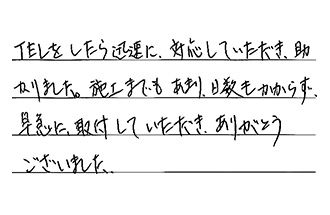 TELをしたら迅速に、対応していただき、助
かりました。施工までも あまり、日数もかからず、
早急に、取付していただき、ありがとう
ございました。